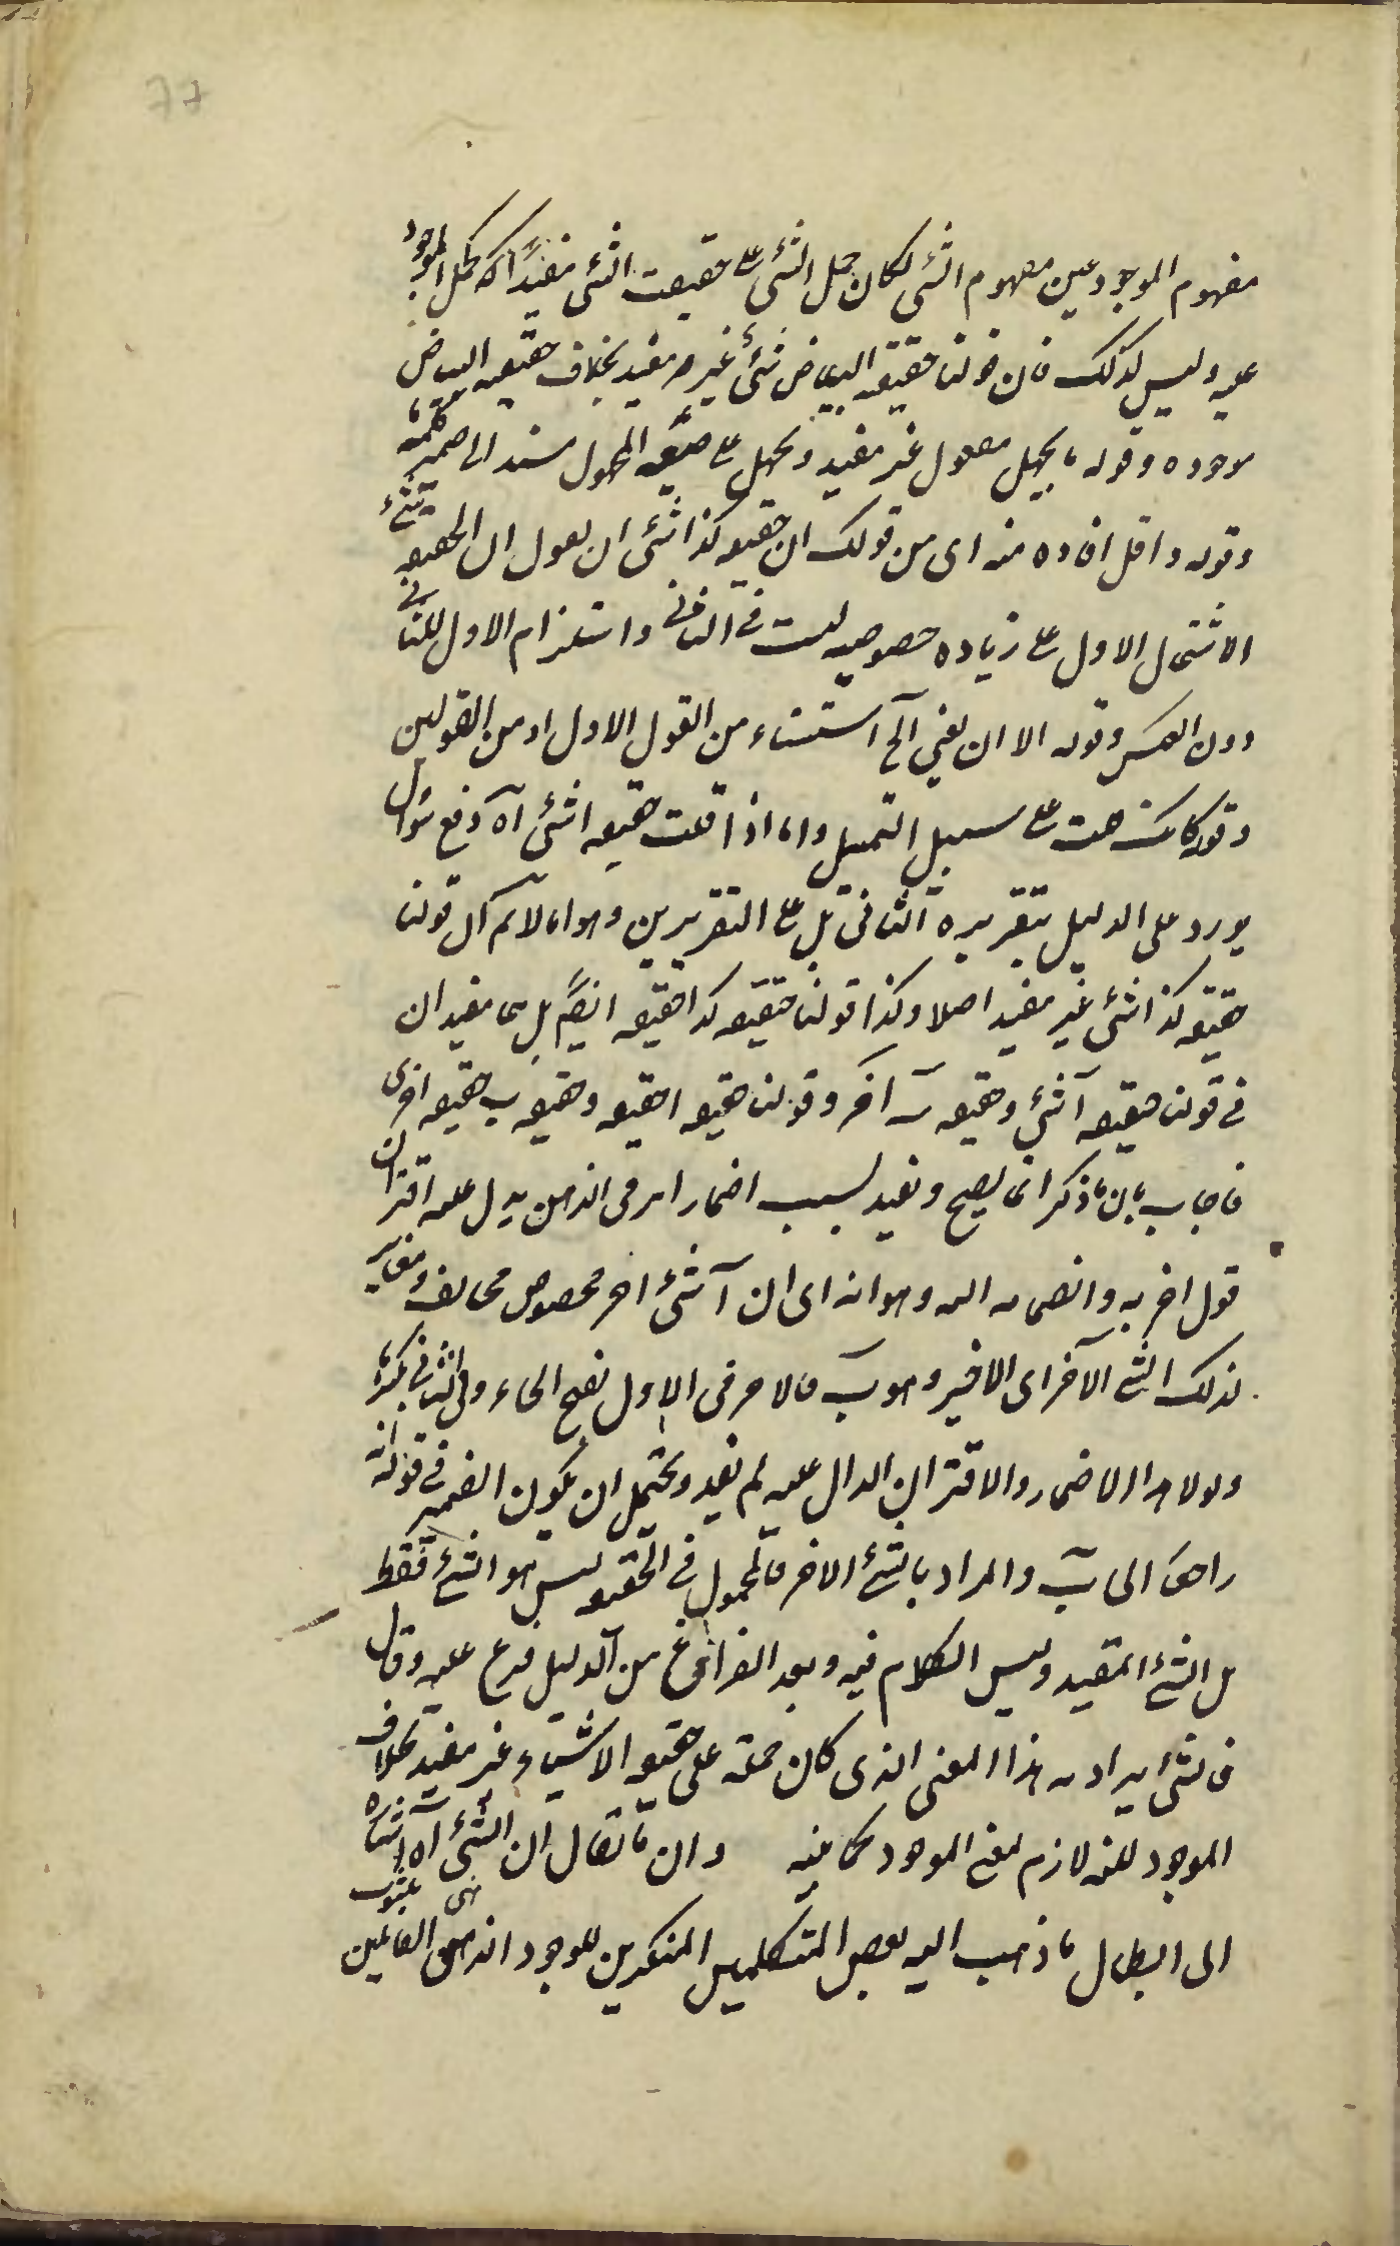 77
مفهوم الموجود عين مفهوم الشئ لكان حمل الشئ على حقيقت الشئ مفيدًا كحمل الموجود
عليه وليس كذلك فان قولنا حقيقة البياض شئ غير مفيد بخلاف حقيقه البياض
موجوده وقوله ما يجهل مفعول غير مفيد ويجهل على صيغه المجهول مسند الى ضمير
وقوله واقل افاده منه اى من قولك ان حقيقه كذا شئ ان يقول ان الحقيقه شئ
الاشتمال الاول على زياده خصوصيه ليست فى الثانى واستلزام الاول للثانى
دون العكس وقوله الا ان يعني الخ استثناء من القول الاول او من القولين
وقوله على سبيل التمثيل واما اذا قلت حقيقه ا شئ آه دفع سؤال
يورد على الدليل بتقريره الثانى بل على التقريرين وهو انا لا نم ان قولنا
حقيقه كذا شئ غير مفيد اصلا وكذا قولنا حقيقه كذا حقيقه ايضً بل هى مفيد ان
فى قولنا حقيقه آ شئ وحقيقه ب آخر وقولنا حقيقه ا حقيقه وحقيقه ب حقيقه اخرى
فاجاب بان ما ذكر انما يصح ويفيد بسبب اضمار امر فى الذهن يدل عليه اقتران
قول اخر به وانضمامه اليه وهو انه اى ان آ شئ اخر مخصوص مخالف ومغاير
لذلك الشئ الآخر اى الاخير وهو ب فالاخر فى الاول بفتح الخاء وفى الثانى بكسرها
ولولا هذا الاضمار والاقتران الدال عليه لم يفيد ويحتمل ان يكون الضمير فى قوله انه
راجعا الى ب والمراد بالشئ الاخر فالمحمول فى الحقيقه ليس هو الشئ فقط
بل الشئ المقيد وليس الكلام فيه وبعد الفراغ من الدليل فرع عليه وقال
فالشئ يراد به هذا المعنى الذى كان حمله على حقيقه الاشياء غير مفيد بخلاف
الموجود لازم لمعنى الموجود وان ما يقال ان الشئ آه اشاره
الى ابطال ما ذهب اليه بعض المتكلمين المنكرين للوجود الذهنى القائلين